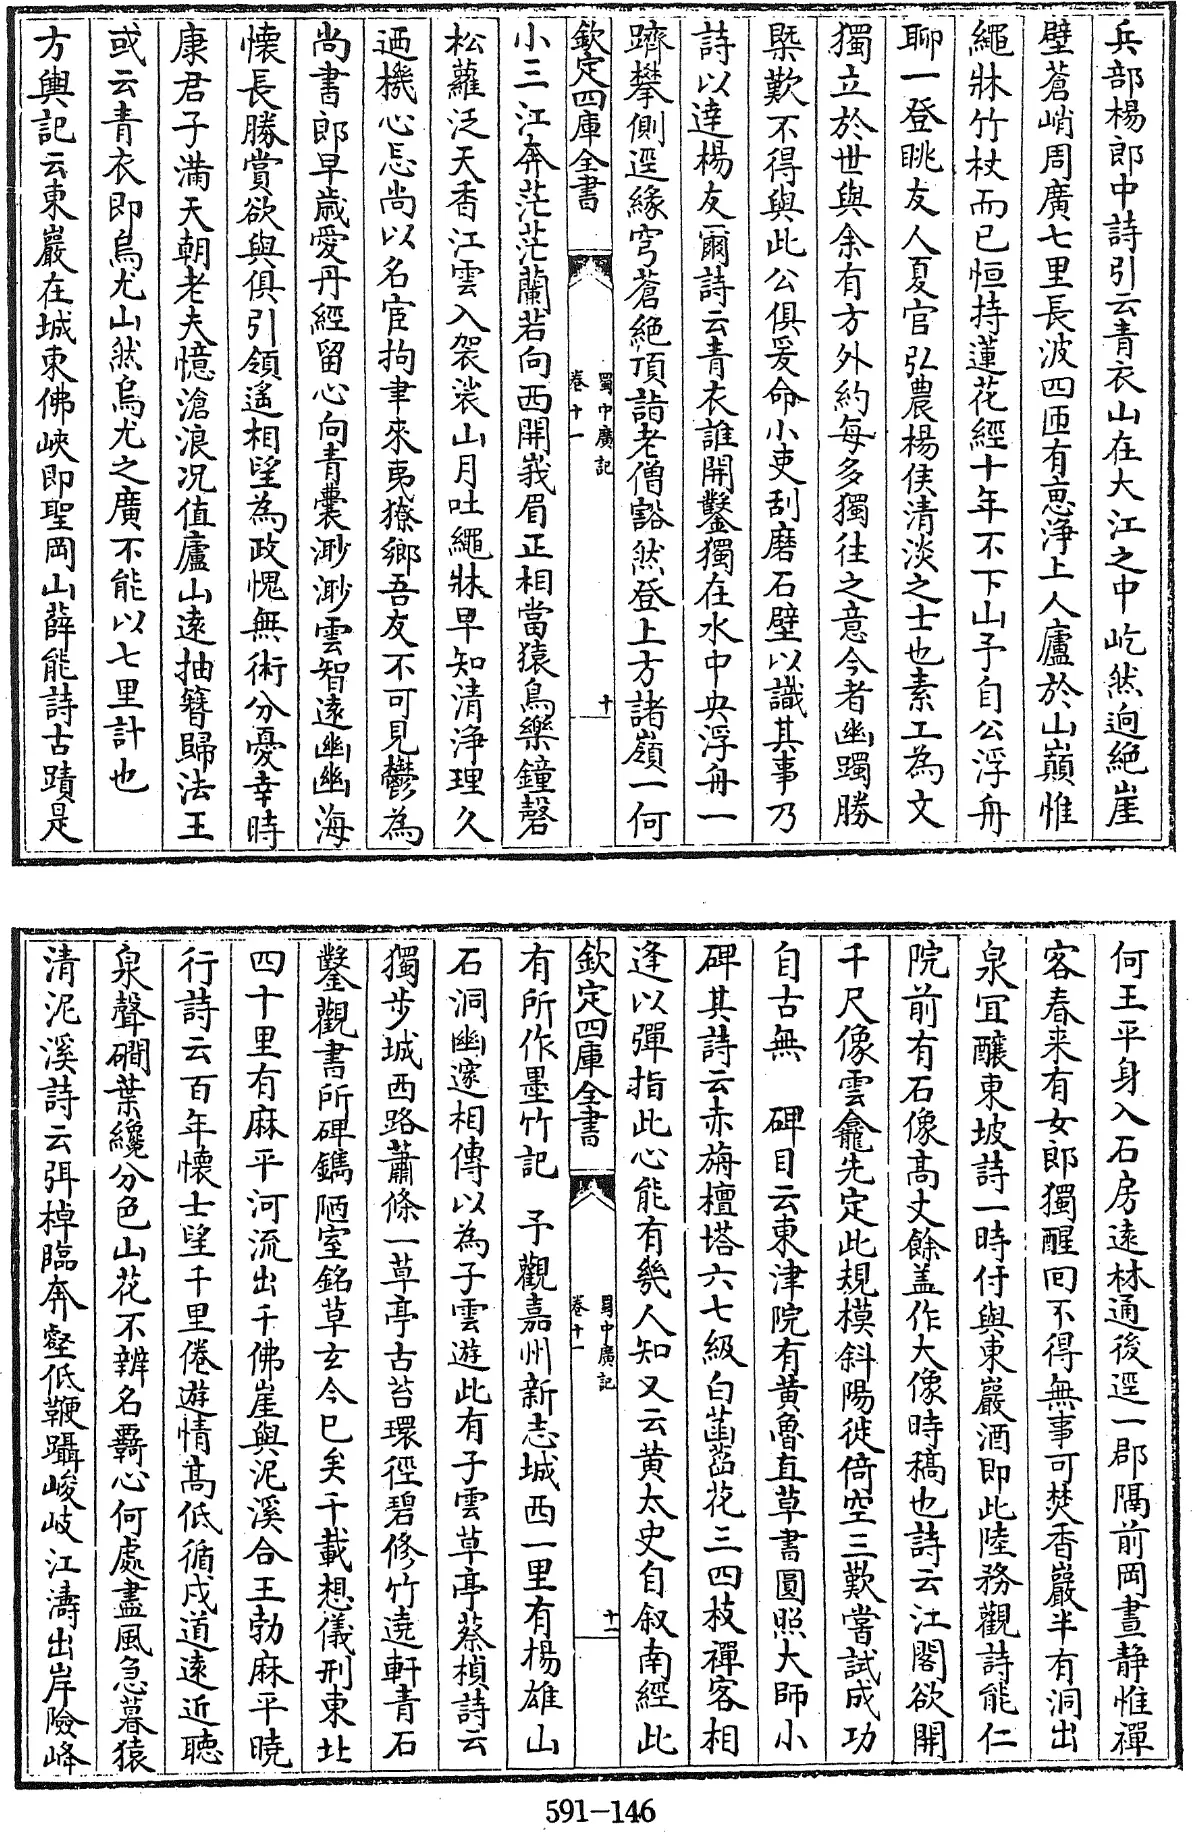 兵部楊郎中詩引云青衣山在大江之中屹然迥絶崖
壁蒼峭周廣七里長波四匝有惠浄上人廬於山巔惟
繩牀竹杖而已恒持蓮花經十年不下山予自公浮舟
聊一登眺友人夏官弘農楊侯清淡之士也素工為文
獨立於世與余有方外約每多獨往之意今者幽躅勝
槩歎不得與此公俱爰命小吏刮磨石壁以識其事乃
詩以達楊友爾詩云青衣誰開鑿獨在水中央浮舟一
躋攀側逕緣穹蒼絶頂詣老僧豁然登上方諸嶺一何
欽定四庫全書
蜀中廣記
卷十一
十
小三江奔茫茫蘭若向西開峩眉正相當猿鳥樂鐘磬
松蘿泛天香江雲入袈裟山月吐繩牀早知清浄理久
迺機心忘尚以名宦拘聿來夷獠鄉吾友不可見鬱為
尚書郎早歲愛丹經留心向青囊渺渺雲智遠幽幽海
懐長勝賞欲與俱引領遙相望為政愧無術分憂幸時
康君子滿天朝老夫憶滄浪况值廬山遠抽簪歸法王
或云青衣即烏尤山然烏尤之廣不能以七里計也
方輿記云東巖在城東佛峽即聖岡山薛能詩古蹟是
何王平身入石房遠林通後逕一郡隔前岡晝静惟禪
客春来有女郎獨醒回不得無事可焚香巖半有洞出
泉宜釀東坡詩一時付與東巖酒即此陸務觀詩能仁
院前有石像高丈餘盖作大像時稿也詩云江閣欲開
千尺像雲龕先定此規模斜陽徙倚空三歎嘗試成功
自古無　碑目云東津院有黄魯直草書圓照大師小
碑其詩云赤旃檀塔六七級白菡萏花三四枝禪客相
逢以彈指此心能有幾人知又云黄太史自叙南經此
欽定四庫全書
蜀中廣記
卷十一
十一
有所作墨竹記　予觀嘉州新志城西一里有楊雄山
石洞幽邃相傳以為子雲遊此有子雲草亭蔡楨詩云
獨步城西路蕭條一草亭古苔環徑碧修竹遶軒青石
鑿觀書所碑鐫陋室銘草玄今已矣千載想儀刑東北
四十里有麻平河流出千佛崖與泥溪合王勃麻平曉
行詩云百年懐士望千里倦遊情高低循戍道遠近聴
泉聲磵葉纔分色山花不辨名羇心何處盡風急暮猿
清泥溪詩云弭棹臨奔壑低鞭躡峻岐江濤出岸險峰
591-146